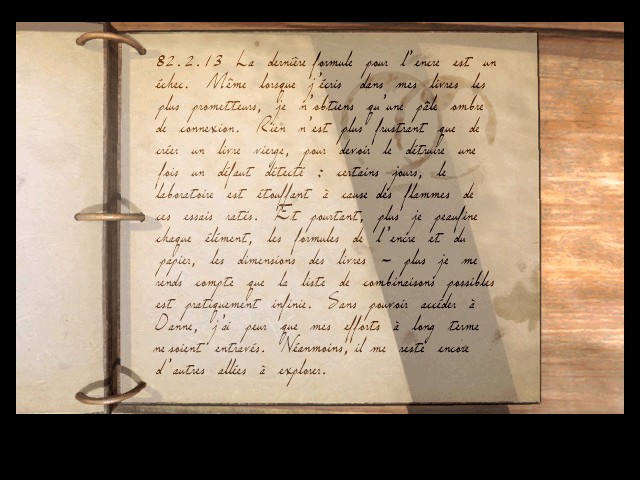 82.2.13 La dernière formule pour l'encre est un
échec. Même lorsque j'écris dans mes livres les
plus prometteurs, je n'obtiens qu'une pâle ombre
de connexion. Rien n'est plus frustrant que de
créer un livre vierge, pour devoir le détruire une
fois un défaut détecté : certains jours, le
laboratoire est étouffant à cause des flammes de
ces essais ratés. Et pourtant, plus je peaufine
chaque élément, les formules de l'encre et du
papier, les dimensions des livres – plus je me
rends compte que la liste de combinaisons possibles
est pratiquement infinie. Sans pouvoir accéder à
D'anne, j'ai peur que mes efforts à long terme
ne soient entravés. Néanmoins, il me reste encore
d'autres allées à explorer.